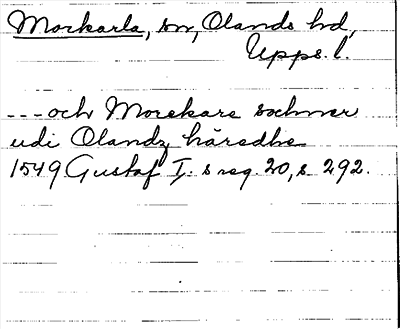 Morkarla, sn, Olands hd,
Upps. l.
--- och Morekare sochner
udi Olandz häredhe
1549 Gustaf I. s reg. 20, s. 292.